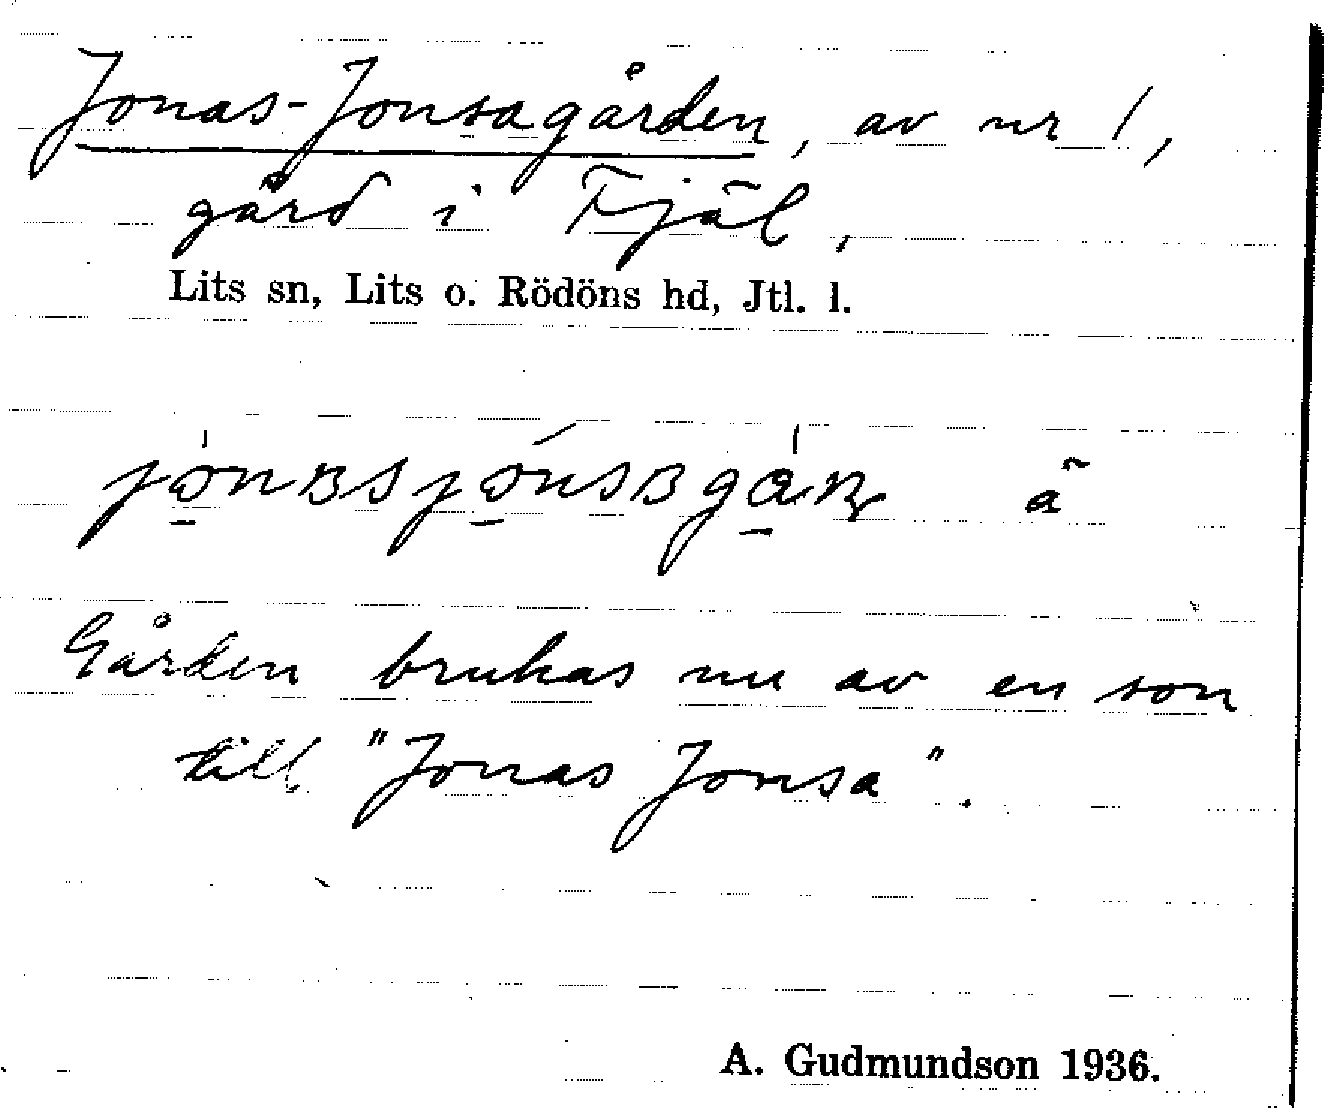 Jonas-Jonsagården, av nr 1,
gård i Fjäl,
Lits sn, Lits o. Rödöns hd, Jtl. l.
ä
Gården brukas nu av en son
till "Jonas Jonsa".
A. Gudmundson 1936.